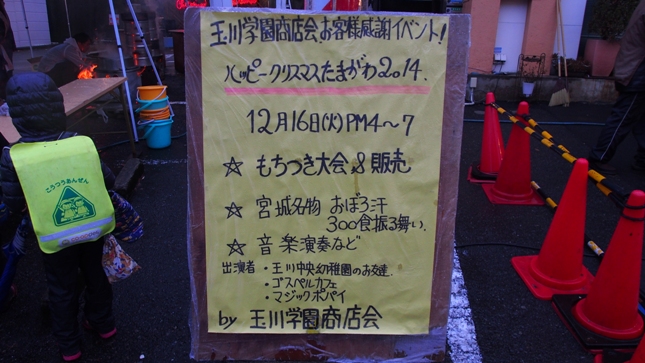 玉川学園商店会、お客様感謝イベント!
ハッピークリスマスたまがわ2014.
12月16日(火)PM4〜7
☆ もちつき大会&販売
☆ 宮城名物 おぼろ汁
300食振る舞い.
☆ 音楽演奏など
出演者・玉川中央幼稚園のお友達.
・ゴスペルカフェ
・マジックポパイ
by 玉川学園商店会
こうつうあんぜん